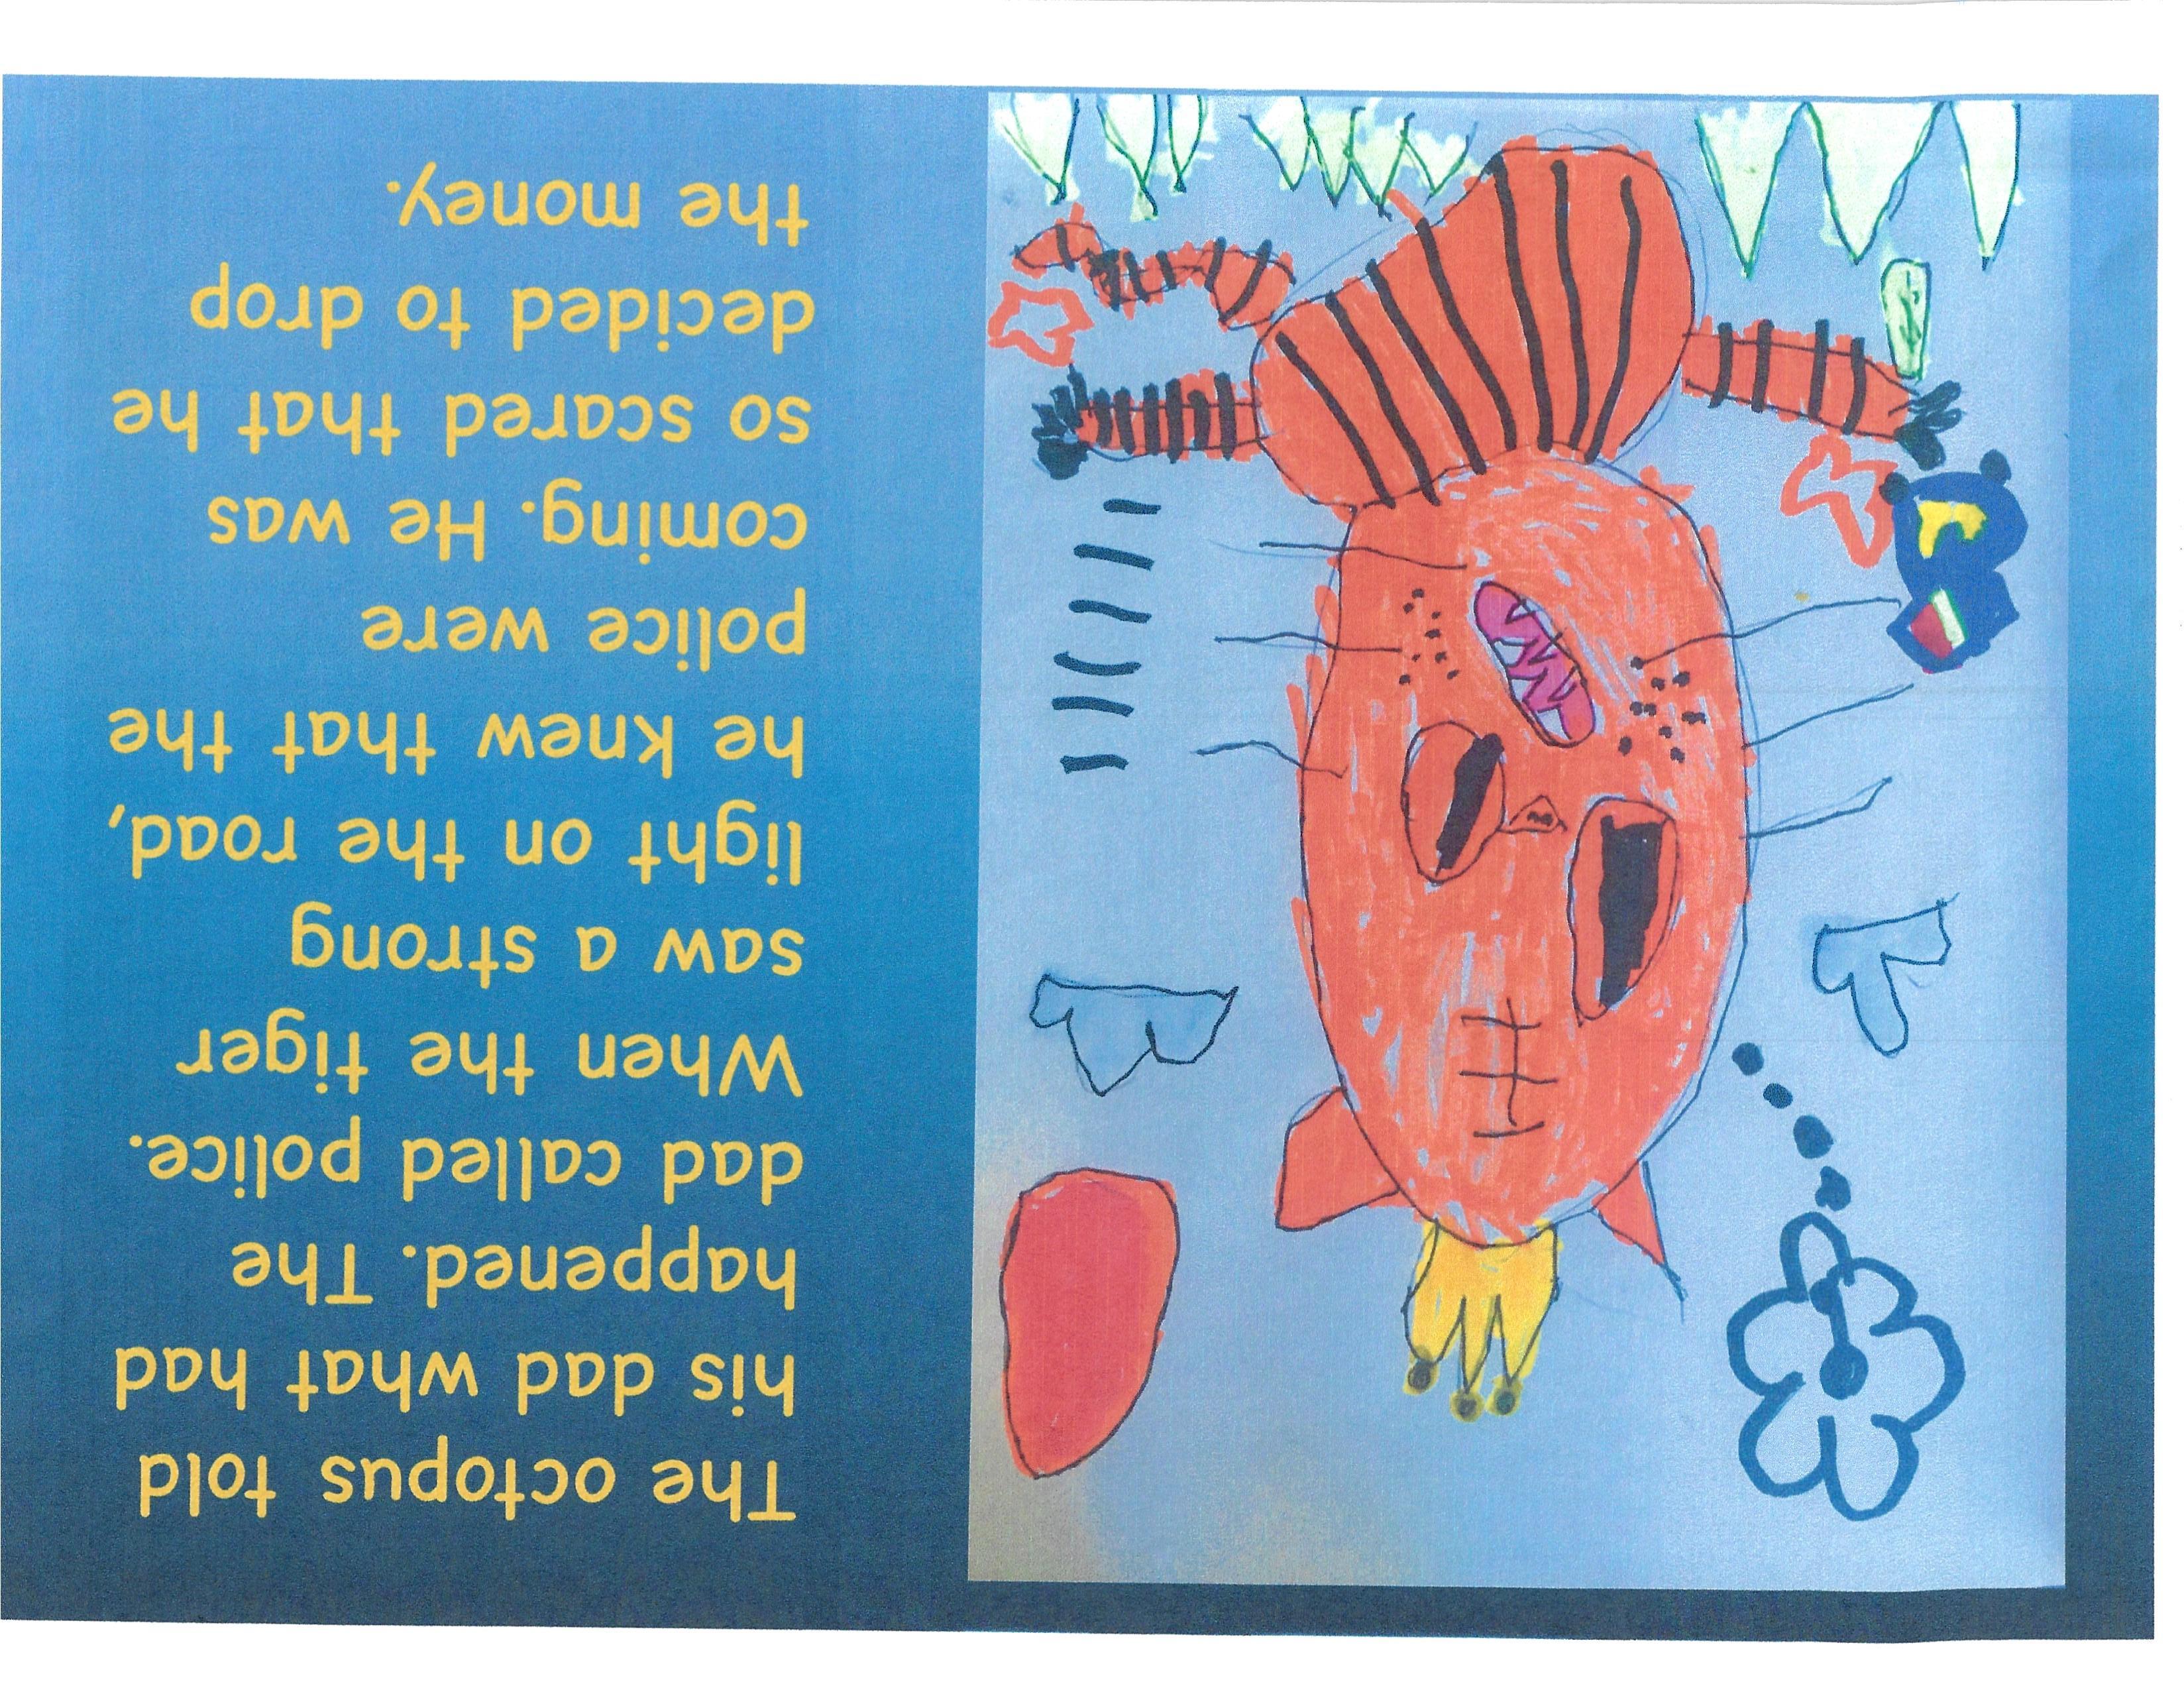 The octopus told
his dad what had
happened. The
dad called police.
When the tiger
saw a strong
light on the road,
he knew that the
police were
coming. He was
so scared that he
decided to drop
the money.